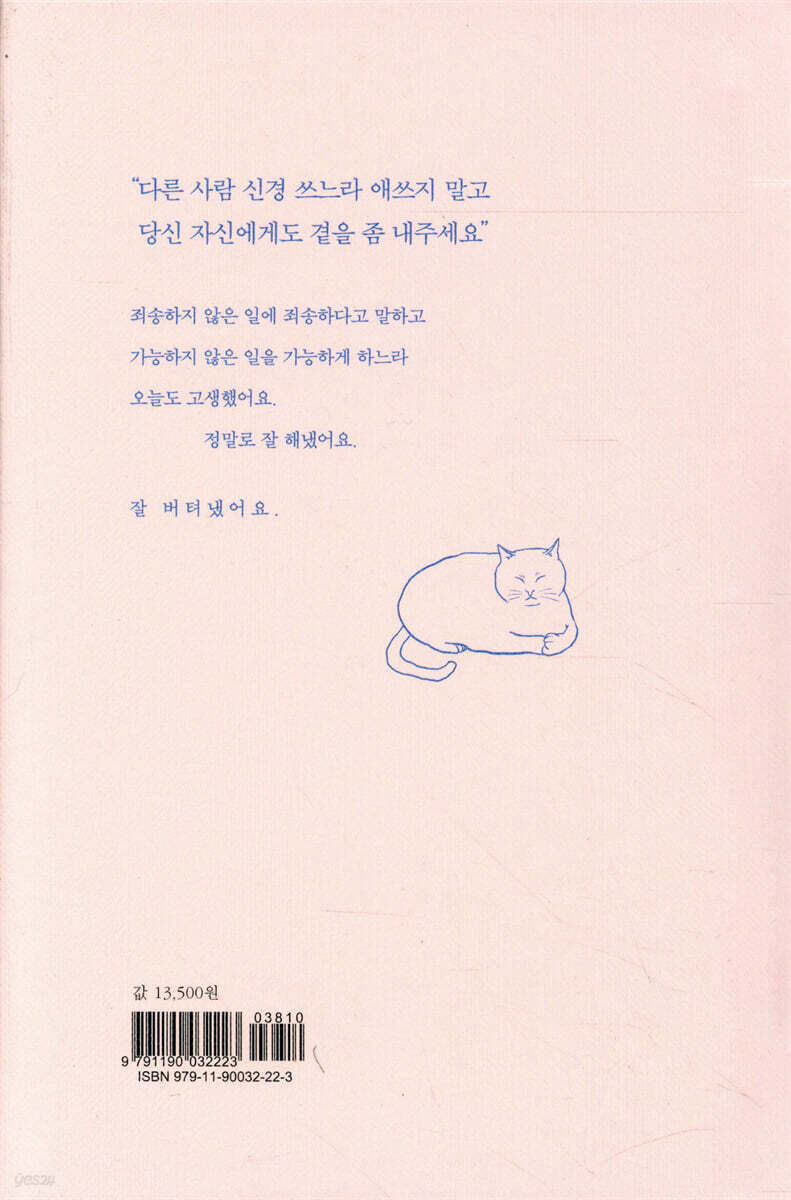 “다른 사람 신경 쓰느라 애쓰지 말고
당신 자신에게도 곁을 좀 내주세요”
죄송하지 않은 일에 죄송하다고 말하고
가능하지 않은 일을 가능하게 하느라
오늘도 고생했어요.
정말로 잘 해냈어요.
잘 버텨냈어요.
값 13,500원
03810
9 791190 032223
ISBN 979-11-90032-22-3
yes24